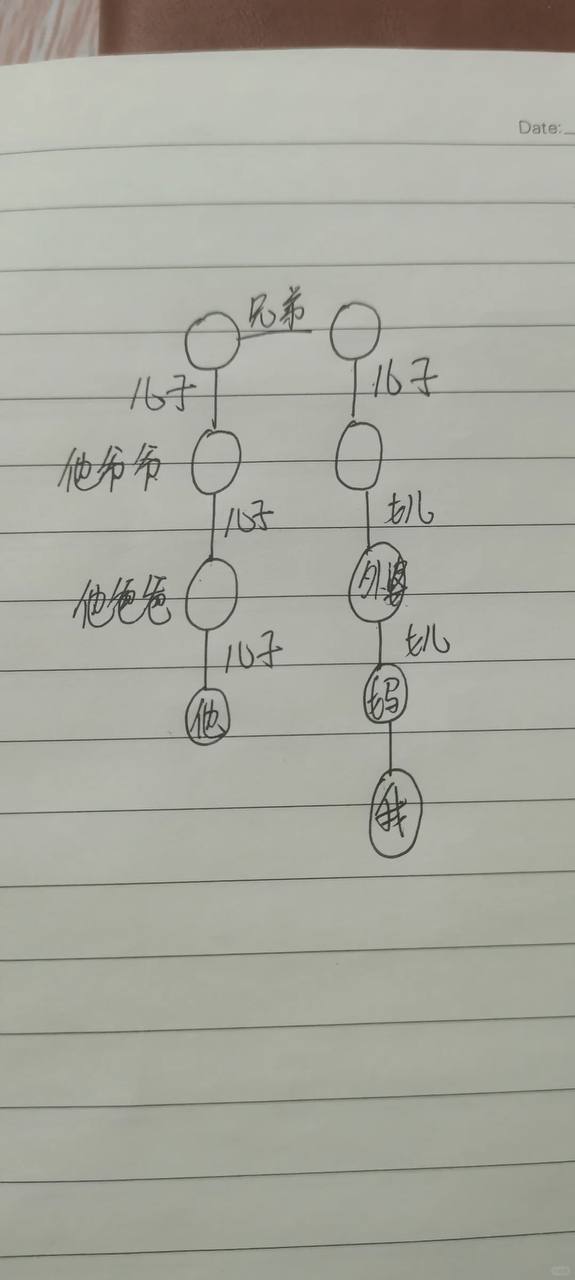 Date:
兄弟
儿子 儿子
他爷爷
儿子 女儿
他爸爸 外婆
儿子 女儿
他 妈
我